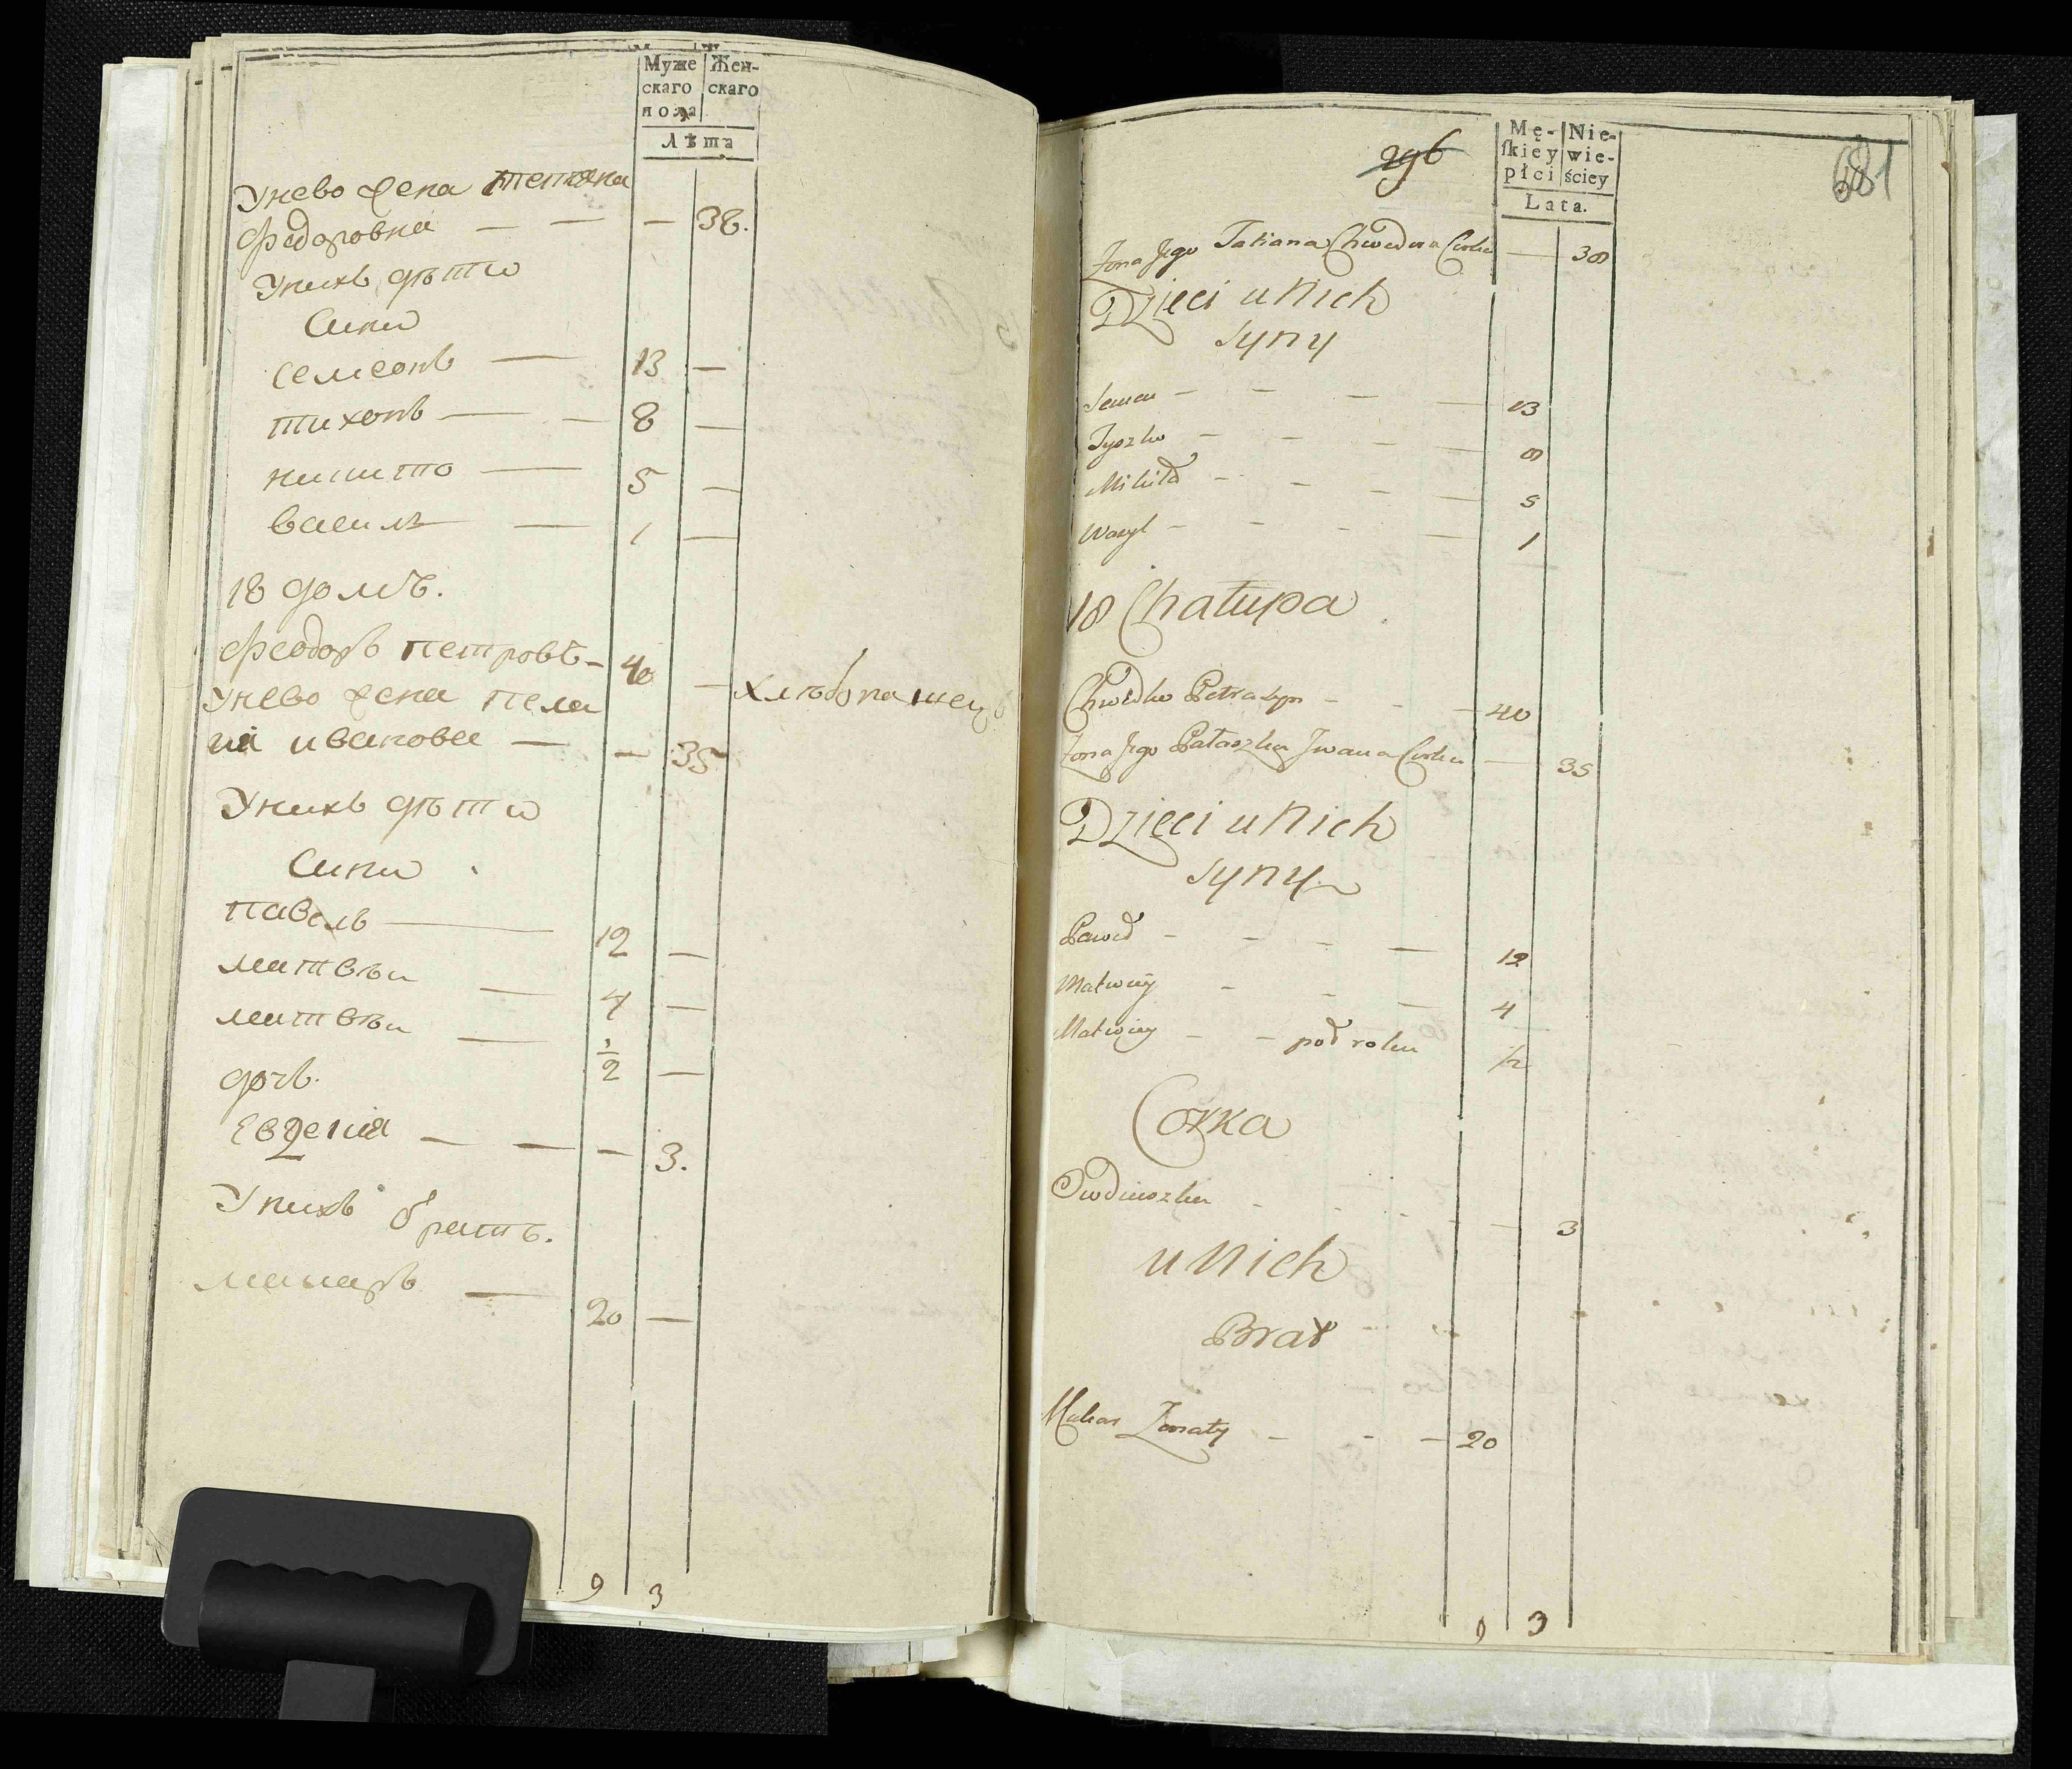 Муже Жен-
скаго скаго
пола
Лѣта
Унево жена татяна
федоровна — — — 38.
Унихъ дѣти
Сини
семеонъ — 13 —
тихонъ — — 8 —
никито — 5 —
василь — 1 —
18 домъ.
феодоръ петровъ — 40 — хлѣбопашецъ
Унево жена пела
гиі иванова — — 35
Унихъ дѣти
Сини
павелъ — 12 —
матвѣи — 4 —
матвѣи — 1/2 —
дочь.
Евдокия — — — 3.
Унихъ братъ.
макаръ — 20 —
9 3
296
681
Mę- Nie-
ſkiey wie-
płci ściey
Lata.
Zona Jego Tatiana Chwedora Corka — 38
Dzieci u Nich
syny
Semen - - - — 13
Tyszko - - - — 8
Mikita - - - — 5
Wasyl - - - — 1
18 Chałupa
Chwedko Petra syn - - — 40
Zona Jego Pałaszka Iwana Corka — 35
Dzieci u Nich
syny
Paweł - - - — 12
Matwiey - - — 4
Matwiey - - poł roku 1/2
Corka
Owdiuszka - - - - — 3
u Nich
Brat
Makar Zonaty - - — 20
9 3